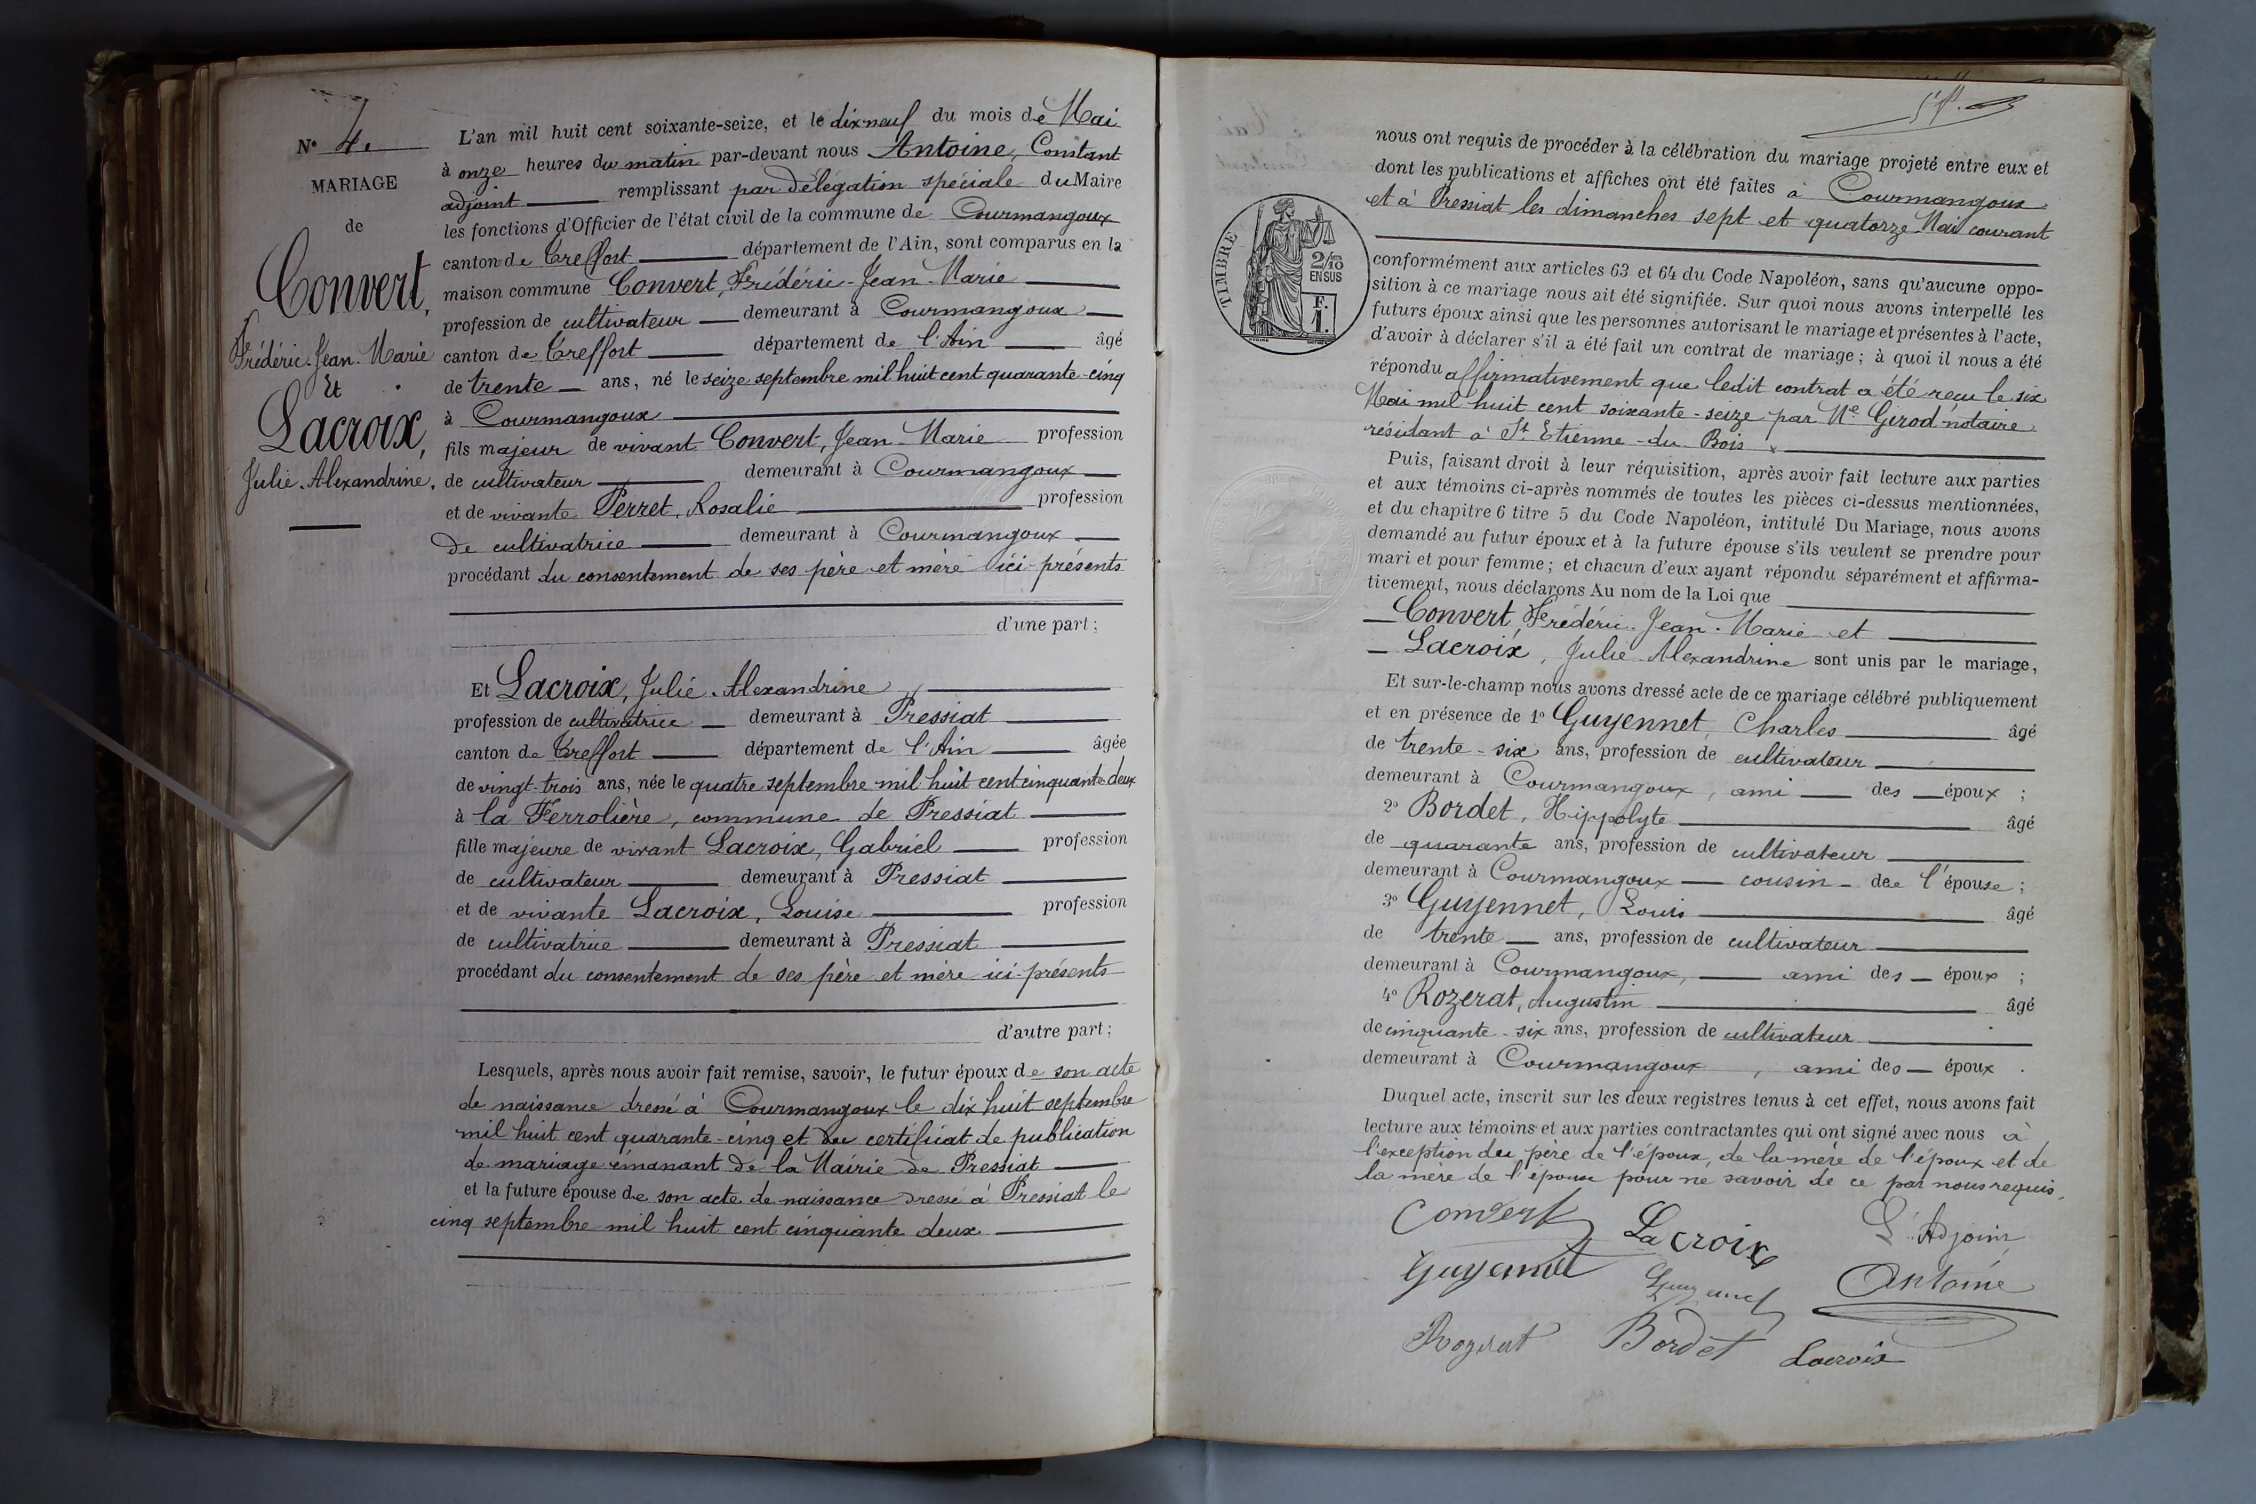 N° 4.
MARIAGE
de
Convert,
Frédéric-Jean-Marie
Et
Lacroix,
Julie-Alexandrine.
L'an mil huit cent soixante-seize, et le dix neuf du mois de Mai
à onze heures du matin par-devant nous Antoine, Constant
adjoint remplissant par délégation spéciale du Maire
les fonctions d'Officier de l'état civil de la commune de Courmangoux
canton de Treffort département de l'Ain, sont comparus en la
maison commune Convert, Frédéric-Jean-Marie
profession de cultivateur demeurant à Courmangoux
canton de Treffort département de l'Ain âgé
de trente ans, né le seize septembre mil huit cent quarante-cinq
à Courmangoux
fils majeur de vivant Convert, Jean-Marie profession
de cultivateur demeurant à Courmangoux
et de vivante Perret, Rosalie profession
de cultivatrice demeurant à Courmangoux
procédant du consentement de ses père et mère ici-présents
d'une part;
Et Lacroix, Julie-Alexandrine
profession de cultivatrice demeurant à Pressiat
canton de Treffort département de l'Ain âgée
de vingt-trois ans, née le quatre septembre mil huit cent cinquante-deux
à la Ferrolière, commune de Pressiat
fille majeure de vivant Lacroix, Gabriel profession
de cultivateur demeurant à Pressiat
et de vivante Lacroix, Louise profession
de cultivatrice demeurant à Pressiat
procédant du consentement de ses père et mère ici-présents
d'autre part;
Lesquels, après nous avoir fait remise, savoir, le futur époux de son acte
de naissance dressé à Courmangoux le dix huit septembre
mil huit cent quarante-cinq et du certificat de publication
de mariage émanant de la Mairie de Pressiat
et la future épouse de son acte de naissance dressé à Pressiat le
cinq septembre mil huit cent cinquante deux
nous ont requis de procéder à la célébration du mariage projeté entre eux et
dont les publications et affiches ont été faites à Courmangoux
et à Pressiat les dimanches sept et quatorze Mai courant
TIMBRE
2/10 EN SUS
F. 1.
conformément aux articles 63 et 64 du Code Napoléon, sans qu'aucune oppo-
sition à ce mariage nous ait été signifiée. Sur quoi nous avons interpellé les
futurs époux ainsi que les personnes autorisant le mariage et présentes à l'acte,
d'avoir à déclarer s'il a été fait un contrat de mariage; à quoi il nous a été
répondu affirmativement que ledit contrat a été reçu le six
Mai mil huit cent soixante-seize par Me Girod notaire
résidant à St Etienne-du-Bois
Puis, faisant droit à leur réquisition, après avoir fait lecture aux parties
et aux témoins ci-après nommés de toutes les pièces ci-dessus mentionnées,
et du chapitre 6 titre 5 du Code Napoléon, intitulé Du Mariage, nous avons
demandé au futur époux et à la future épouse s'ils veulent se prendre pour
mari et pour femme; et chacun d'eux ayant répondu séparément et affirma-
tivement, nous déclarons Au nom de la Loi que
Convert, Frédéric-Jean-Marie et
Lacroix, Julie-Alexandrine sont unis par le mariage,
Et sur-le-champ nous avons dressé acte de ce mariage célébré publiquement
et en présence de 1° Guyennet, Charles âgé
de trente-six ans, profession de cultivateur
demeurant à Courmangoux, ami des époux;
2° Bordet, Hippolyte âgé
de quarante ans, profession de cultivateur
demeurant à Courmangoux cousin de l'épouse;
3° Guyennet, Louis âgé
de trente ans, profession de cultivateur
demeurant à Courmangoux, ami des époux;
4° Rozerat, Augustin âgé
de cinquante-six ans, profession de cultivateur
demeurant à Courmangoux, ami des époux.
Duquel acte, inscrit sur les deux registres tenus à cet effet, nous avons fait
lecture aux témoins et aux parties contractantes qui ont signé avec nous à
l'exception du père de l'époux, de la mère de l'époux et de
la mère de l'épouse pour ne savoir de ce par nous requis.
Convert Lacroix L'Adjoint
Guyennet Guyennet Antoine
Rozerat Bordet Lacroix